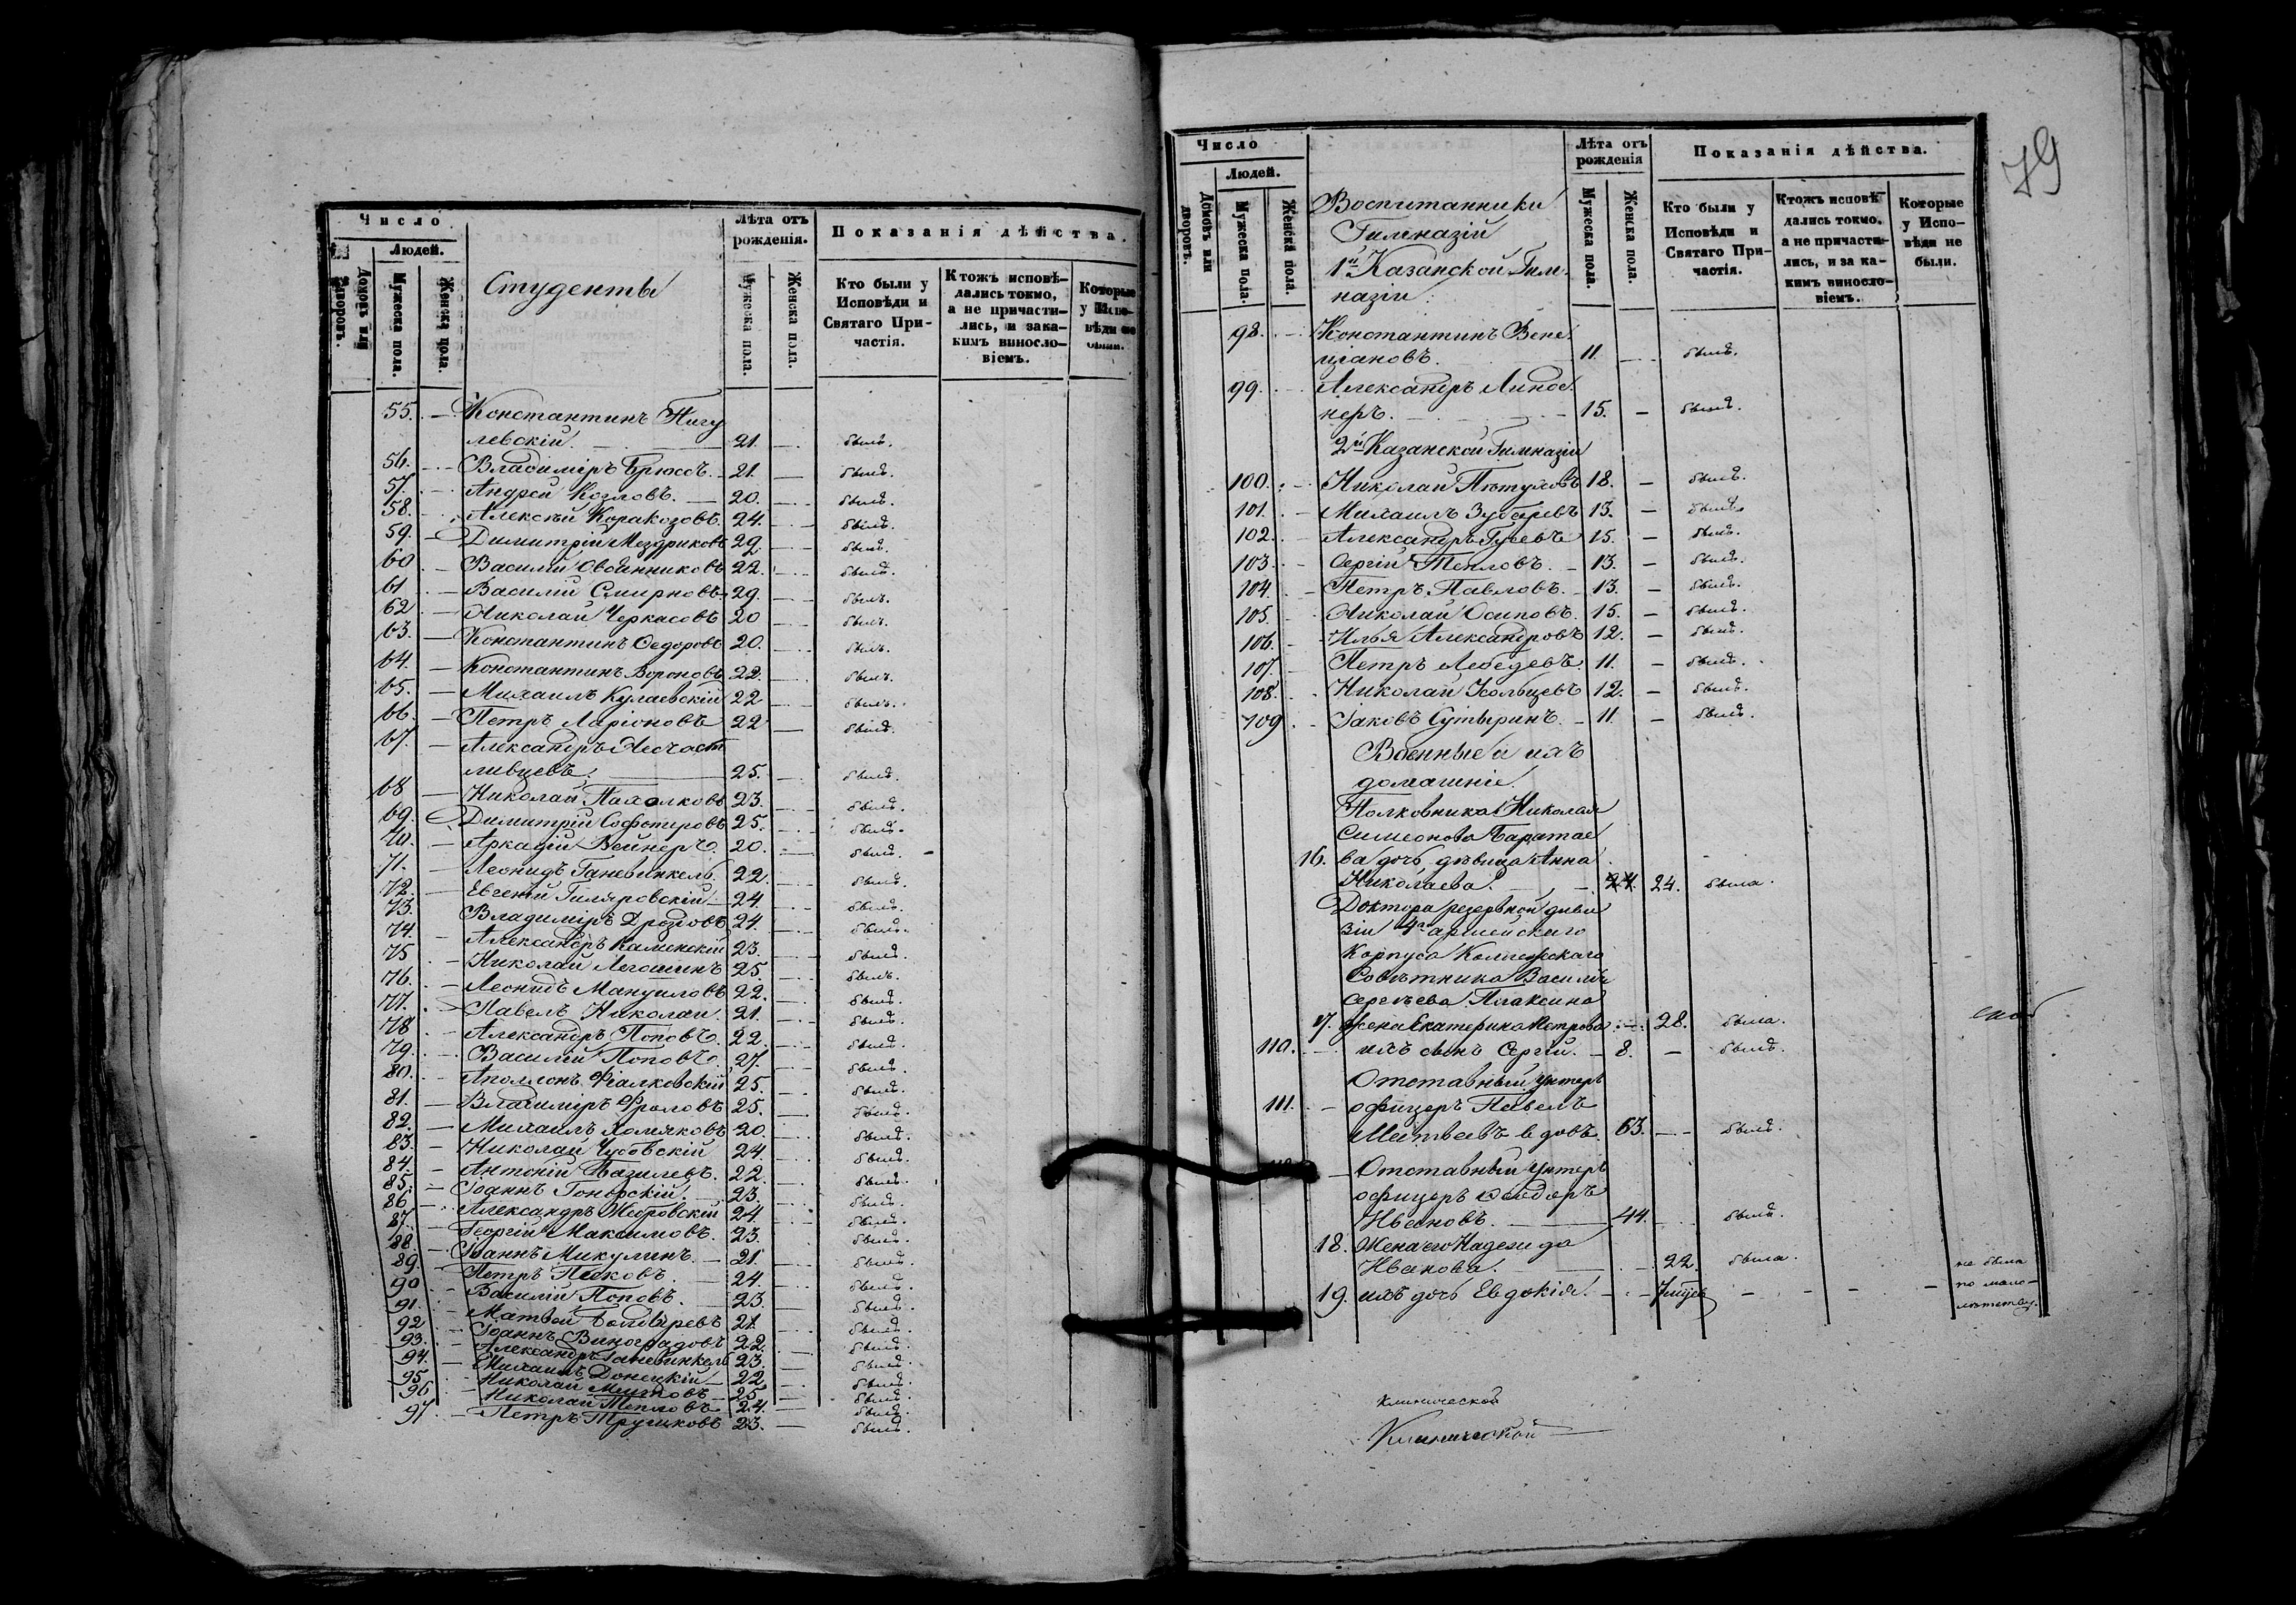 Число
Людей.
Домовъ или дворовъ.
Мужеска пола.
Женска пола.
Студенты
Лѣта отъ рожденія.
Мужеска пола.
Женска пола.
Показанія дѣйства.
Кто были у Исповѣди и Святаго Причастія.
Ктожъ исповѣдались токмо, а не причастились, и за какимъ винословіемъ.
Которые у Исповѣди не были.
55. — Константинъ Нигу
левскій. — 21. — былъ.
56. — Владиміръ Брюсъ. — 21. — былъ.
57. — Андрей Козловъ. — 20. — былъ.
58. — Алексѣй Каракозовъ. 24. — былъ.
59. — Димитрій Мездриковъ 29. — былъ.
60 — Василій Овчинниковъ 22. — былъ.
61 — Василій Смирновъ 29. — былъ.
62 — Николай Черкасовъ 20 — былъ.
63. — Константинъ Ѳедоровъ 20. — былъ.
64. — Константинъ Вороновъ 22. — былъ.
65. — Михаилъ Кулаевскій 22 — былъ.
66. — Петръ Ларіоновъ 22 — былъ.
67. — Александръ Несчаст
ливцевъ. — 25. — былъ.
68 — Николай Пахолковъ 23. — былъ.
69. — Димитрій Софотеровъ 25. — былъ.
70. — Аркадій Вейнеръ. 20. — былъ.
71. — Леонидъ Ганевинкель. 22. — былъ.
72. — Евгеній Гиляровскій — 24. — былъ.
73. Владиміръ Дроздовъ 24. — былъ.
74. — Александръ Каменскій 23. — былъ.
75 — Николай Легошинъ 25. — былъ.
76. — Леонидъ Мануиловъ 22. — былъ.
77. — Павелъ Николаи. 21. — былъ.
78 — Александръ Поповъ. 22. — былъ.
79. — Василій Поповъ. 27. — былъ.
80. — Аполлонъ Фіалковскій 25. — былъ.
81. — Владиміръ Фроловъ 25. — былъ.
82. — Михаилъ Хомяковъ 20. — былъ.
83 — Николай Чудовскій 24. — былъ.
84. — Антоній Базилевъ. 22. — былъ.
85. — Іоаннъ Гонорскій. — 23. — былъ.
86 — Александръ Жебровскій 24. — былъ.
87. — Георгій Максимовъ. 23. — былъ.
88. — Іоаннъ Микулинъ. — 21. — былъ.
89. — Петръ Песковъ. — 24. — былъ.
90 — Василій Поповъ. — 23. — былъ.
91. — Матвей Болдыревъ 21. — былъ.
92 — Іоаннъ Виноградовъ 22. — былъ.
93. — Александръ Ганевинкель 23. — былъ.
94. — Михаилъ Донецкій — 22. — былъ.
95. — Николай — 25 — былъ.
96 — Николай Тепловъ — 24. — былъ.
97. — Петръ Трушковъ 23. — былъ.
79
Число
Людей.
Домовъ или дворовъ.
Мужеска пола.
Женска пола.
Воспитанники
Гимназій
1й Казанской Гим
назіи:
Лѣта отъ рожденія
Мужеска пола.
Женска пола.
Показанія дѣйства.
Кто были у Исповѣди и Святаго Причастія.
Ктожъ исповѣдались токмо, а не причастились, и за какимъ винословіемъ.
Которые у Исповѣди не были.
98. — Константинъ Вене
ціановъ. 11. — былъ.
99. — Александръ Линде
неръ. — 15. — былъ.
2й Казанской Гимназіи
100. — Николай Пѣтуховъ 18. — былъ.
101. — Михаилъ Зубаревъ 13. — былъ.
102. — Александръ Гусевъ 15. — былъ.
103. — Сергій Тепловъ. — 13. — былъ.
104. — Петръ Павловъ. — 13. — былъ.
105. Николай Осиповъ. 15. — былъ.
106. — Илья Александровъ 12. — былъ.
107. — Петръ Лебедевъ. 11. — былъ.
108. — Николай Кольцевъ 12. — былъ.
109 — Іаковъ Сутыринъ. — 11. — былъ.
Военные и ихъ
домашніе.
Полковника Николая
Симеонова Баратае
16. ва дочь дѣвица Анна
Николаева. — 24. 24. была.
Доктора резервной диви
зіи 4го армейскаго
Корпуса Коллежскаго
Совѣтника Василія
Сергѣева Плаксина
17. жена Екатерина Петрова. — 28. была.
110. — ихъ сынъ Сергій. — 8. — былъ.
Отставный унтеръ
111. — офицеръ Павелъ
Матвеевъ вдовъ. 63. — былъ.
— Отставный унтеръ
офицеръ Ѳеодоръ
Ивановъ. — 44. — былъ.
18. Жена его Надежда
Иванова. — 22. была.
19. ихъ дочь Евдокія. — 7 — — — — не была
по мало—
лѣтству.
клинической
Клинической